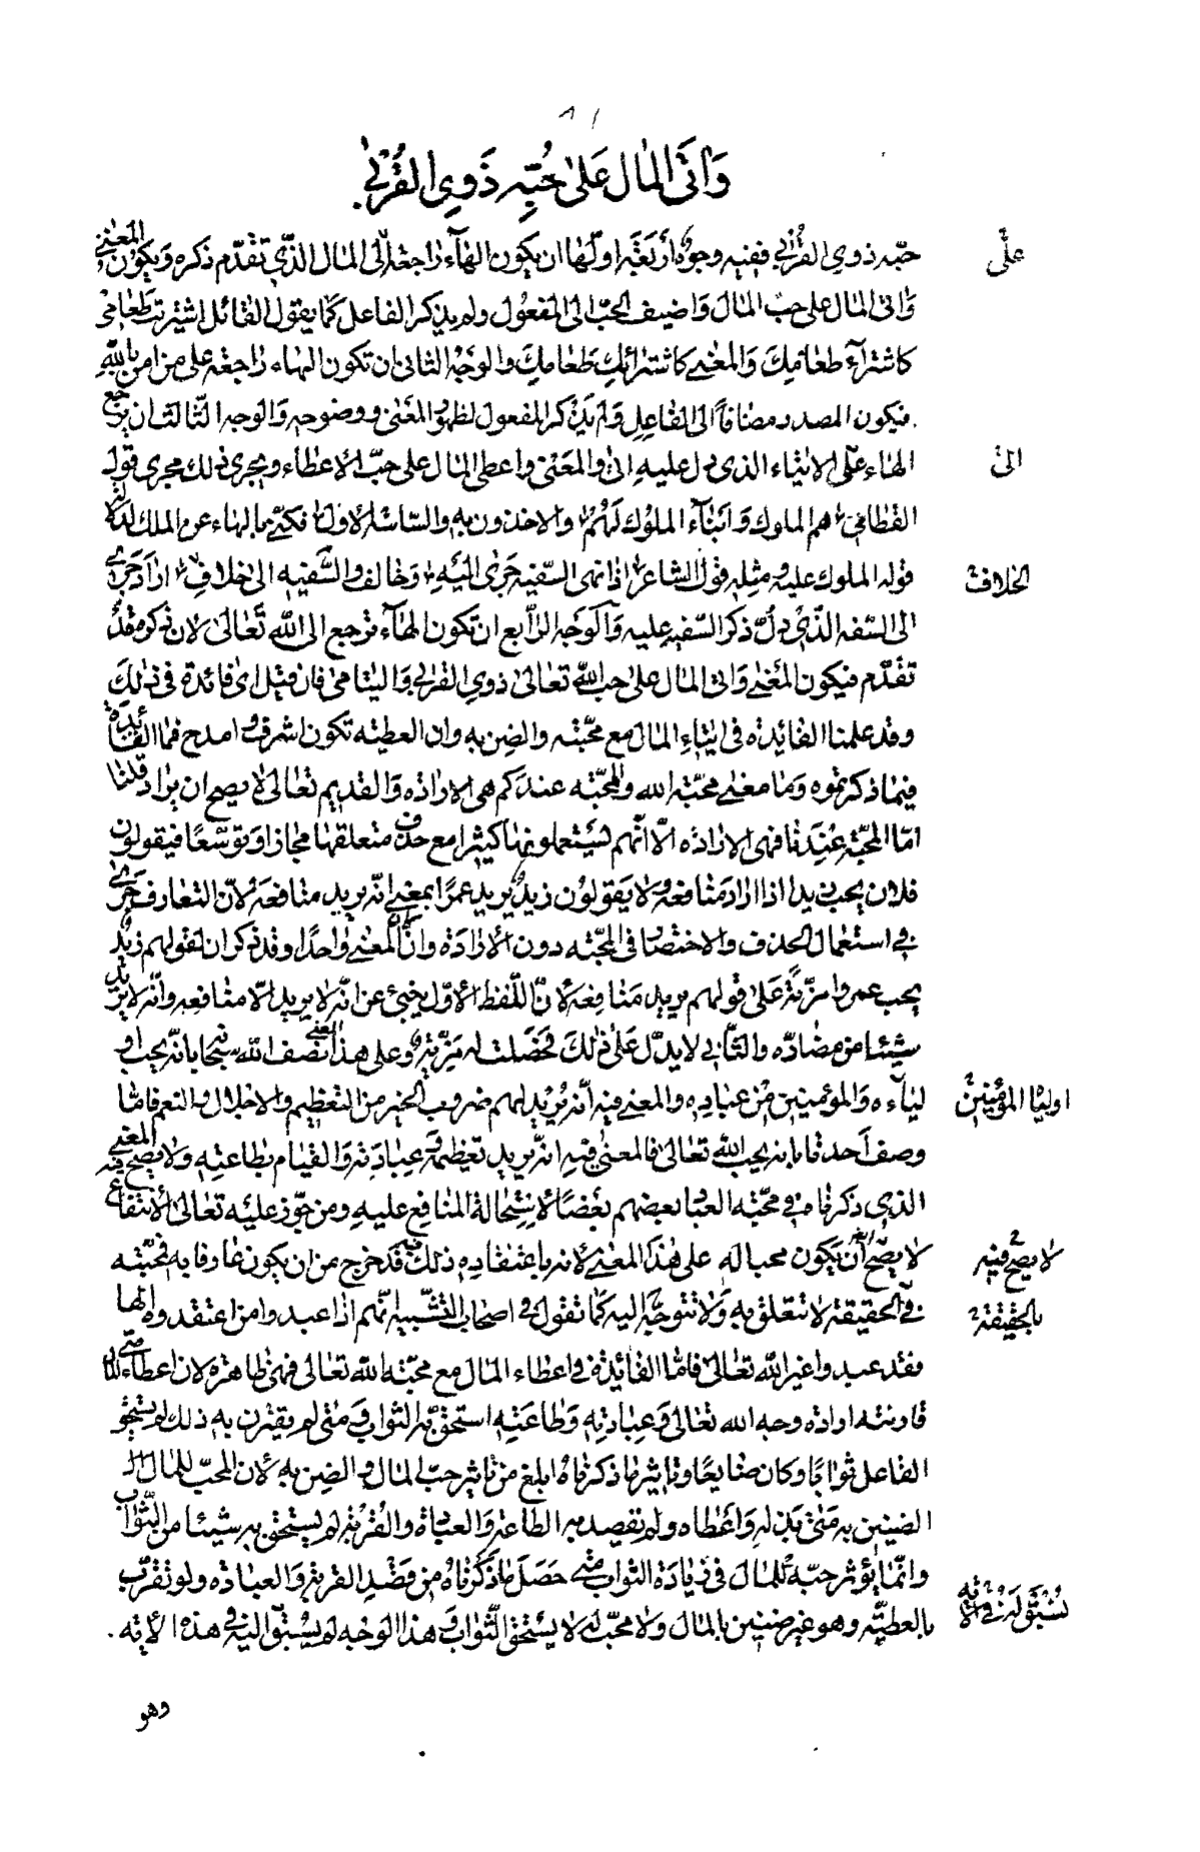 ٨١
وَاتَى المٰال عَلىٰ حُبِّهِ ذَوِي القُربىٰ
علىٰ
حبّه ذوي القُربىٰ ففيه وجوهٌ أربَعَة اوّلها ان يكون الهٰآء رٰاجعة الى المٰال الذّي تقدّم ذكره ويكون المعنىٰ
وَاتى المٰال على حبّ المٰال وَاضيف الحبّ الى المفعُول ولم يذكر الفاعل كمٰا يقول القٰائل اشتريت طعٰامى
كاشترآء طعٰامِكَ وَالمعنىٰ كاشترائك طعٰامك والوجه الثانى ان تكون الهٰاء رٰاجعة على من امن بٰاللّٰه
فيكون المصدر مضٰافاً الى الفٰاعل وَلم يذكر المفعول لظهور المعنى ووضوحه وَالوجه الثّالث ان يرجع
الى
الهٰاء علىٰ الايتٰاء الذى دل عليه اتى والمعنىٰ واعطى المٰال على حبّ الاعطٰاء ويجرى ذلك مجرى قول
القطٰامىّ هم الملوك وَابنٰآء الملوك لهُم والاخذون به والسٰاسة الاول فكنّى بالهٰاء عن الملك لدلالة
الخلاف
قوله الملوك عليه ومثله قول الشاعر اذا نهى السّفيه جَرىٰ اليه وَخالف والسّفيه الى خلاف ارٰادَ جَرىٰ
الى السّفه الذّى دلّ ذكر السّفيه عليه وَالوَجه الرّابع ان تكون الهٰآء ترجع الى اللّٰه تَعٰالىٰ لان ذكره قد
تقدّم فيكون المَعنىٰ وَاتى المٰال على حب اللّٰه تعٰالىٰ ذوي القربىٰ وَاليتٰامىٰ فان قيل اى فائدة فى ذٰلك
وقد علمنا الفٰائدة فى ايتٰاء المٰال مع محبّته والضن به وان العطيّه تكون اشرف وامدح فمٰا الفٰائدة
فيمٰا ذكرتموه وَمٰا معنىٰ محبّة اللّٰه والمحبّة عندكم هى الارادة وَالقديم تعٰالىٰ لا يصح ان يرٰاد قلنٰا
امّا المحبّة عِندَنٰا فهى الارٰادة الّا انّهم يستعملونهٰا كثيراً مع حذف متعلقهٰا مجٰازاً وتوسّعاً فيقولون
فلان يحب زيداً اذا ارٰادَ منٰافعه وَلا يقولون زيدٌ يريد عمراً بمعنىٰ انّه يريد منٰافعَه لانّ التعٰارف جَرىٰ
فى استعمٰال الحذف والاختصٰار فى المحبّة دون الارٰادة وان كٰان المَعنىٰ وٰاحداً وقد ذكر ان لقولهم زيدٌ
يحب عمرواً مزيّة عَلىٰ قولهم يريد مَنٰافعه لانّ اللّفظ الاوّل ينبئ عن انّه لا يريد الّا منٰافعه وانّه لا يريد
شيئاً من مضٰارّه والثّانى لا يدلّ عَلىٰ ذٰلكَ فحَصَلت له مزيّة وعلى هذا المعنىٰ نصف اللّٰه سبحٰانه بانّه يحب او
اوليٰا المؤمنين
ليٰآءه وَالمؤمنين من عبٰاده والمعنىٰ فيه انّه يُريد لهم ضروب الخير من التعظيم والاجلال والنعم فامّا
وصف اَحدنا بانه يحب اللّٰه تعٰالىٰ فالمعنىٰ فيه انّه يريد تعظيمه وَعبٰادته وَالقيٰام بطٰاعته وَلا يصح فيه المعنىٰ
الذي ذكرنٰاه فى محبّة العبٰاد بعضهم بعضاً لاستحٰالة المنٰافع عليه ومن جوّز عليه تعٰالىٰ الانتفٰاع
لا يصح فيه
لا يصحّ أن يَكون محباً له على هٰذا المعنىٰ لانه باعتقٰاده ذلك فيه قد خرج من ان يكون عارفاً به فمحبّته
بالحقيقة
فى الحقيقة لا تتعلق به وَلا تتوجّه اليه كمٰا نقول فى اصحٰاب التشبيه انّهم اذٰا عبدوا من اعتقدوه الهٰا
فقد عبدوا غير اللّٰه تعٰالىٰ فامّا الفٰائدة فى اعطٰاء المٰال مع محبّة اللّٰه تعٰالىٰ فهى ظٰاهرة لان اعطٰاء المٰال متى
قارنته ارادة وجه اللّٰه تعٰالىٰ وَعبٰادته وَطٰاعته استحق به الثوٰاب ومتى لم يقترن به ذلك لم يستحق
الفٰاعل ثوٰاباً وكان ضٰايعاً وتٰاثير مٰا ذكرنٰاه ابلغ من تٰاثير حبّ المٰال والضن به لان المحبّ للمٰال
الضنين به متىٰ بَذله وَاعطٰاه ولم يقصد به الطٰاعة وَالعبٰادة والقُربة لم يستحق به شيئاً من الثّوٰاب
وانّمٰا يؤثر حبّه للمٰال فى زيٰادَة الثوٰاب متىٰ حَصَلَ مٰا ذَكرنٰاهُ من قَصْدِ القربة وَالعبٰادة ولو تقرّب
نسبق له فى الايه
بالعطيّه وهو غير ضنين بالمٰال ولا محبّ له لا يستحق الثّوٰاب وَهذا الوَجه لم يُسبق اليه فى هذه الايه .
وهو